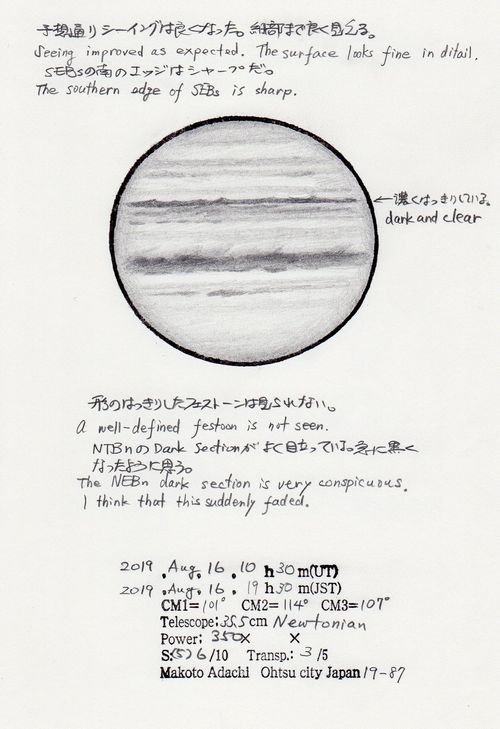 予想通りシーイングは良くなった。細部まで良く見える。
Seeing improved as expected. The surface looks fine in ditail.
SEBsの南のエッジはシャープだ。
The southern edge of SEBs is sharp.
←濃くはっきりしている。
dark and clear
形のはっきりしたフェストーンは見られない。
A well-defined festoon is not seen.
NTBnのDark Sectionがよく目立っている。急に黒く
なったように思う。
The NEBn dark section is very conspicuous.
I think that this suddenly faded.
2019 . Aug. 16 . 10 h 30 m(UT)
2019 . Aug. 16 . 19 h 30 m(JST)
CM1= 101° CM2= 114° CM3= 107°
Telescope: 35.5cm Newtonian
Power: 350× ×
S:(5) 6/10 Transp.: 3/5
Makoto Adachi Ohtsu city Japan 19-87